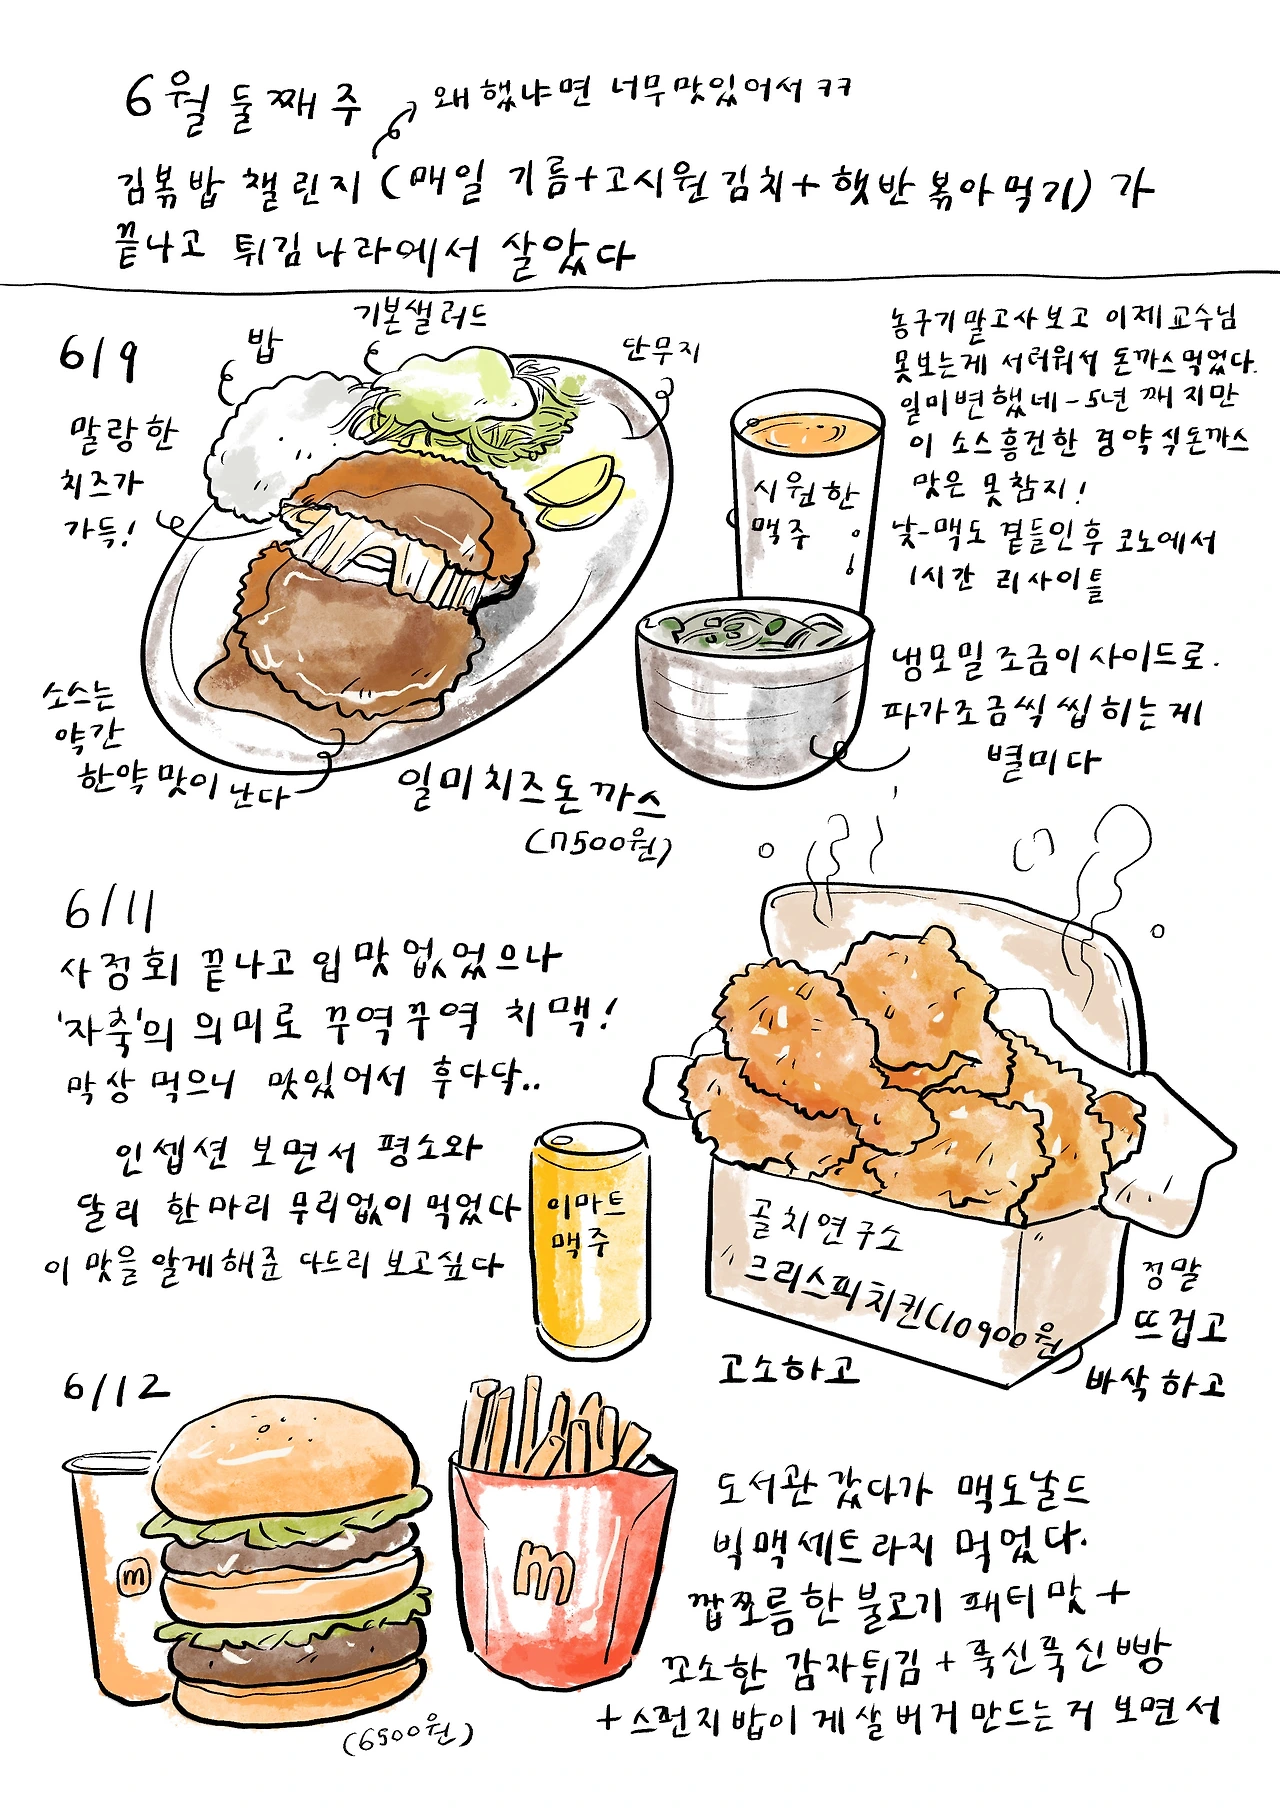 6월 둘째 주
왜 했냐면 너무맛있어서 ㅋㅋ
김볶밥 챌린지 (매일 기름+고시원김치+햇반볶아먹기)가
끝나고 튀김나라에서 살았다
6/9
밥
기본샐러드
단무지
말랑한
치즈가
가득!
소스는
약간
한약맛이 난다
일미치즈돈까스
(7500원)
시원한
맥주!
농구기말고사보고 이제교수님
못보는게 서러워서 돈까스먹었다.
일미변했네-5년째지만
이 소스흥건한 경약식돈까스
맛은 못참지!
낮-맥도 곁들인후 코노에서
1시간 리사이틀
냉모밀조금이 사이드로.
파가조금씩 씹히는게
별미다
6/11
사정회 끝나고 입맛없었으나
'자축'의 의미로 꾸역꾸역 치맥!
막상 먹으니 맛있어서 후다닥..
인셉션 보면서 평소와
달리 한마리 무리없이 먹었다
이 맛을 알게해준 다드리 보고싶다
이마트
맥주
골치연구소
크리스피치킨(10900원
정말
뜨겁고
바삭하고
고소하고
6/12
m
m
(6500원)
도서관 갔다가 맥도날드
빅맥세트라지 먹었다.
짭쪼름한 불고기 패티맛+
꼬소한 감자튀김+푹신푹신빵
+스펀지밥이 게살버거만드는거 보면서